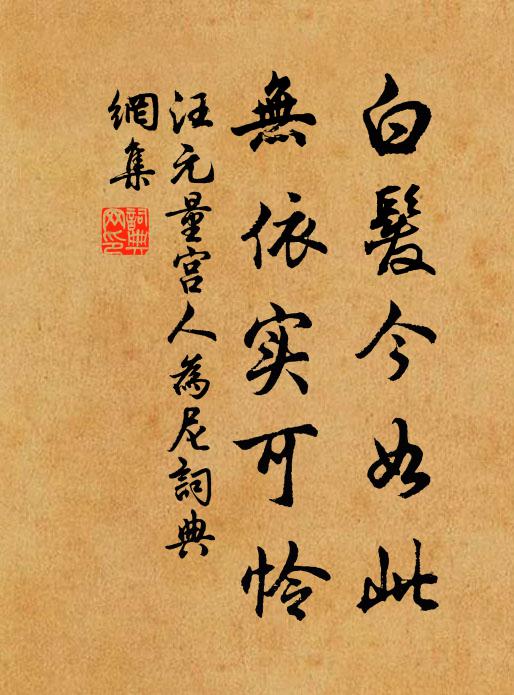 白髮今如此
無依实可怜
汪元量宫人為尼詞典
網集
詞典網印